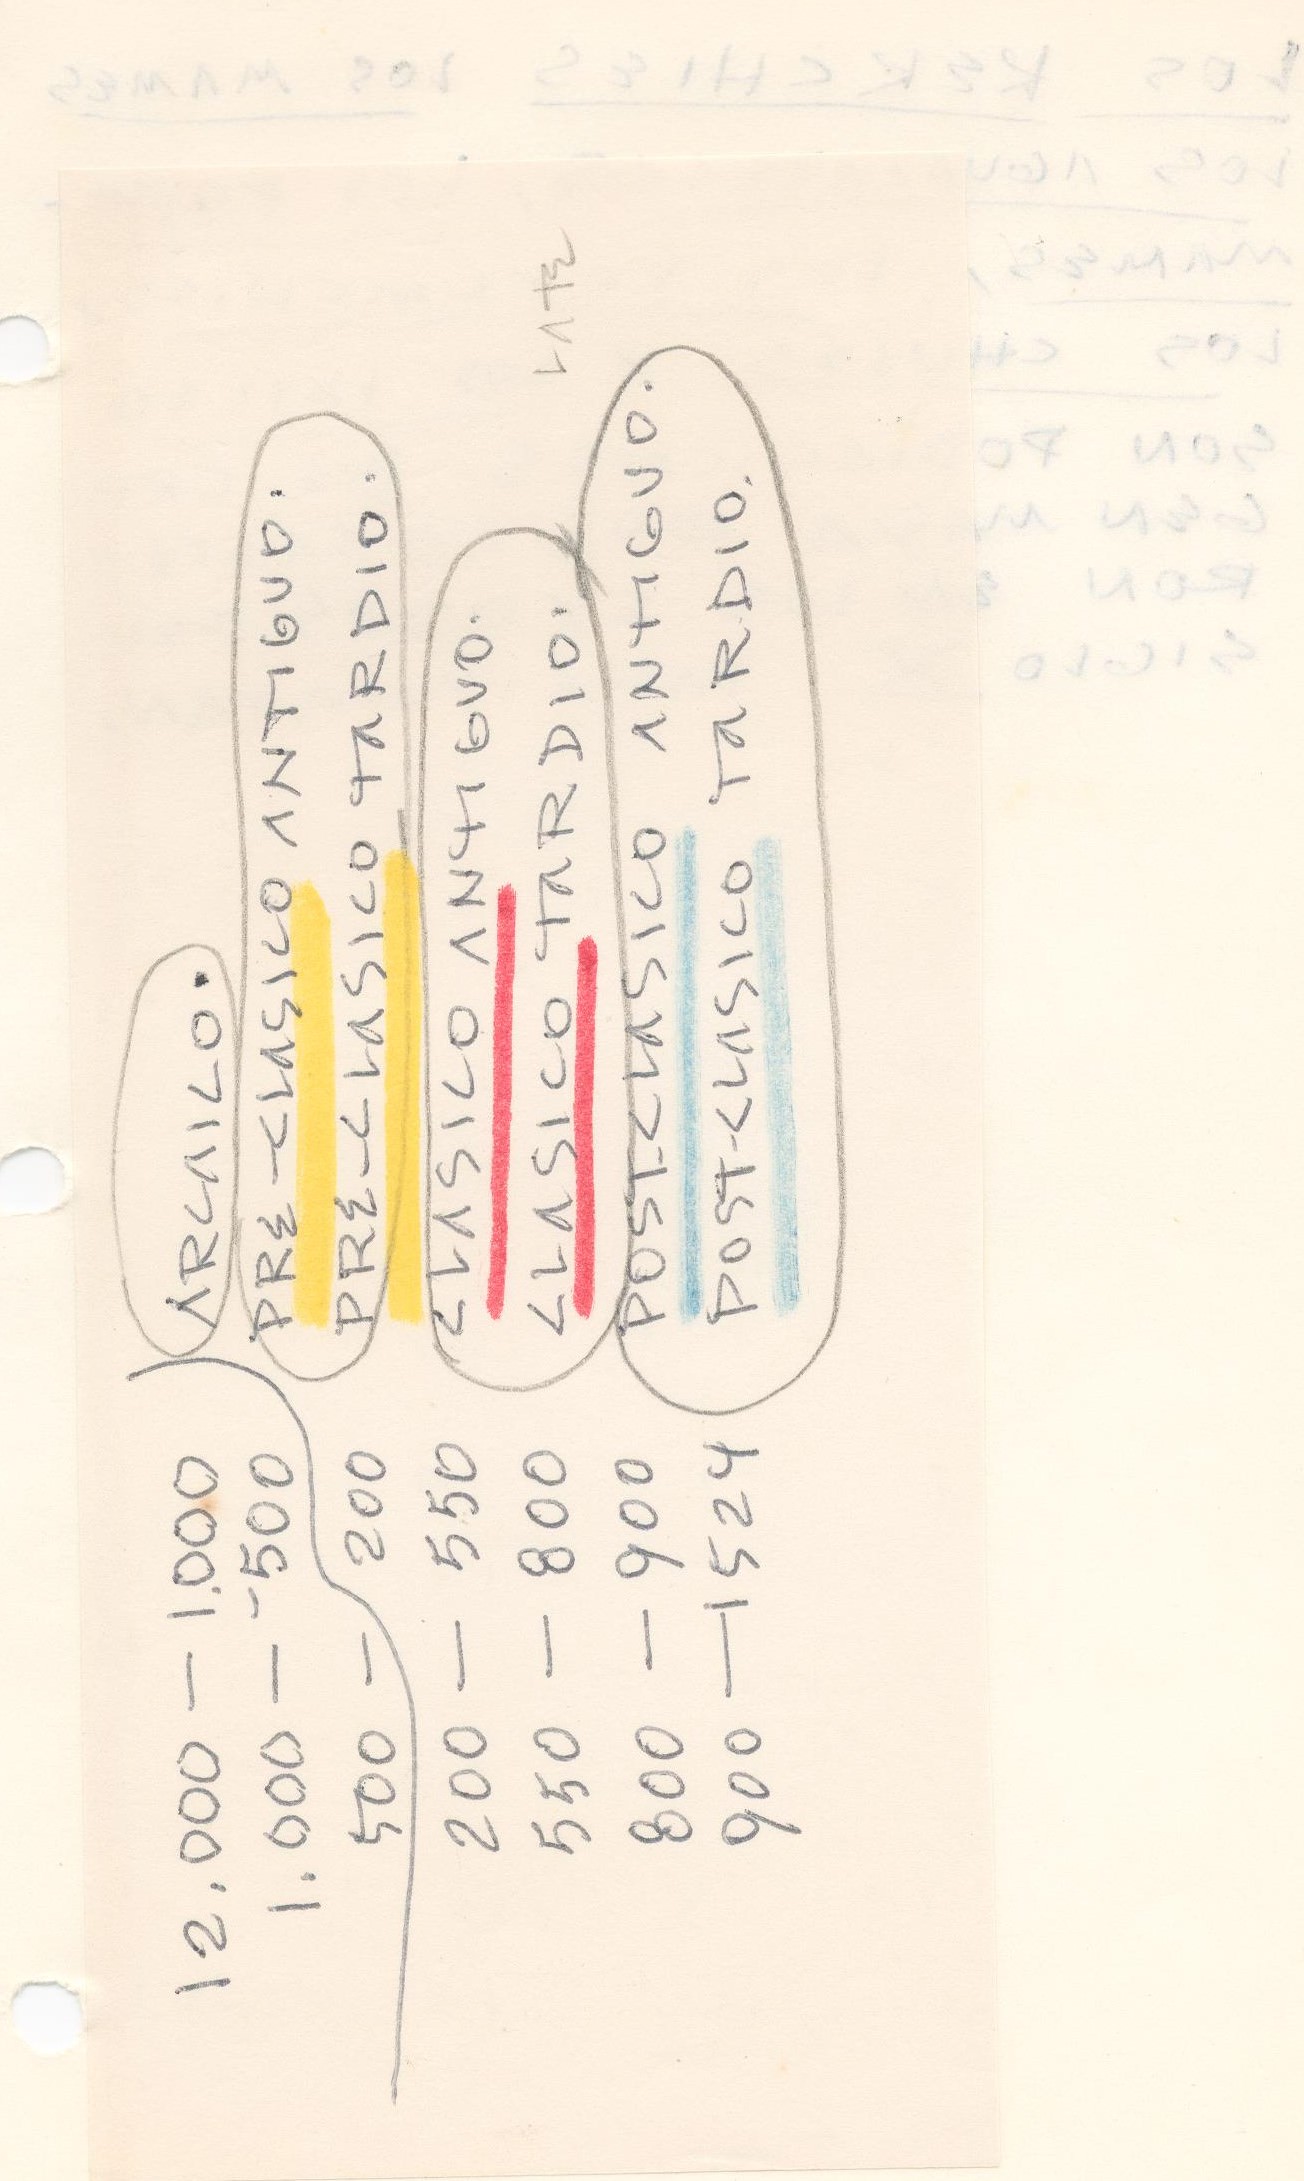 12.000 — 1.000 ARCAICO.
1.000 — -500 PRE-CLASICO ANTIGUO.
500 — 200 PRE-CLASICO TARDIO.
200 — 550 CLASICO ANTIGUO.
550 — 800 CLASICO TARDIO. LATE
800 — 900 POST-CLASICO ANTIGUO.
900 — 1524 POST-CLASICO TARDIO.
LOS KEKCHIES LOS MAMES
LOS
MAMES,
LOS
SON
RON
SIGLO